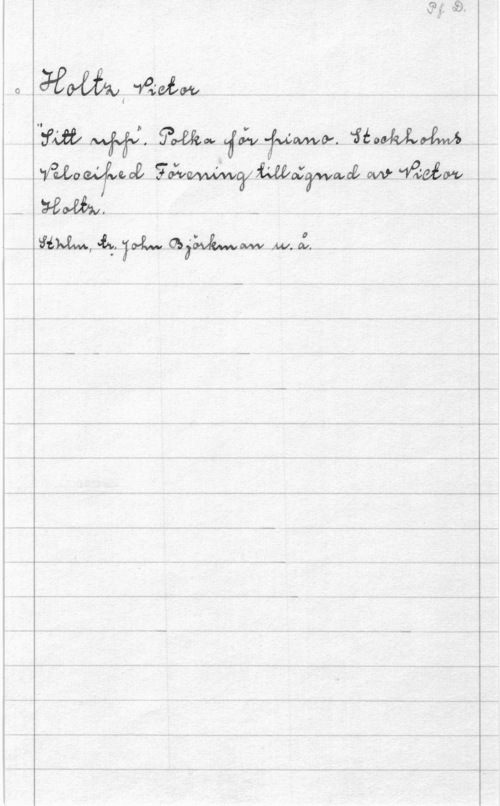 Pf. D.
Holtz, Victor
"Sitt upp". Polka för piano. Stockholms
Velociped Förening tillägnad av Victor
Holtz.
Sthlm, tr. John Björkman u. å.